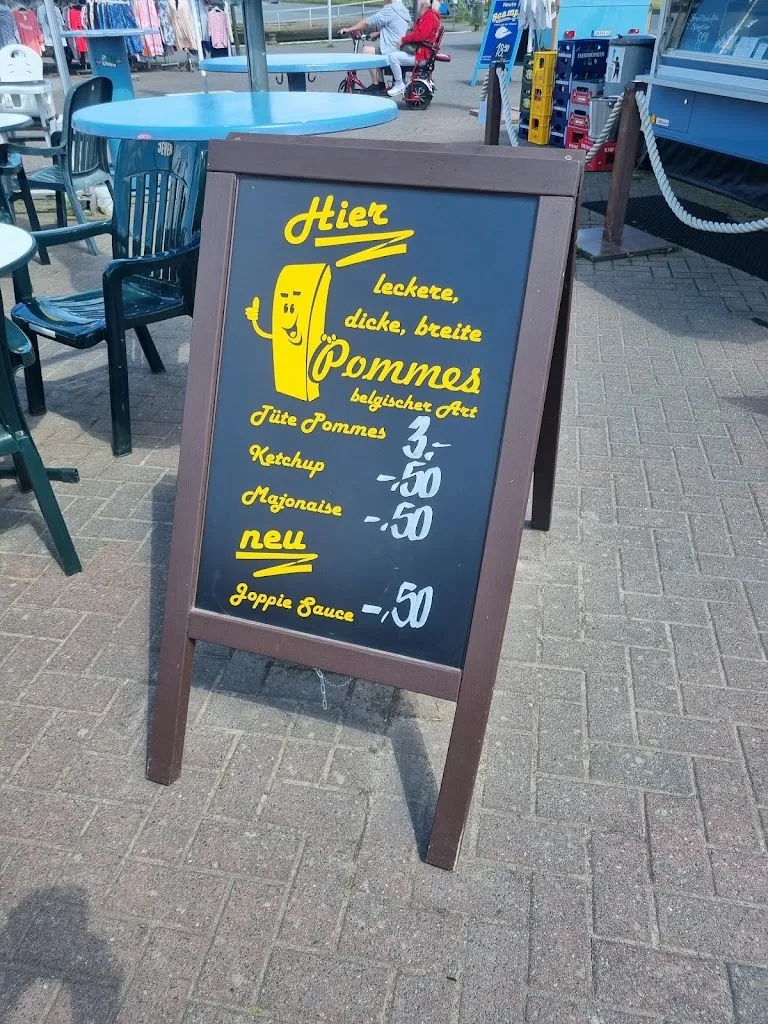 Hier
leckere,
dicke, breite
Pommes
belgischer Art
Tüte Pommes 3,-
Ketchup -,50
Majonaise -,50
neu
Joppie Sauce -,50
JEVER
Heute
Scampi